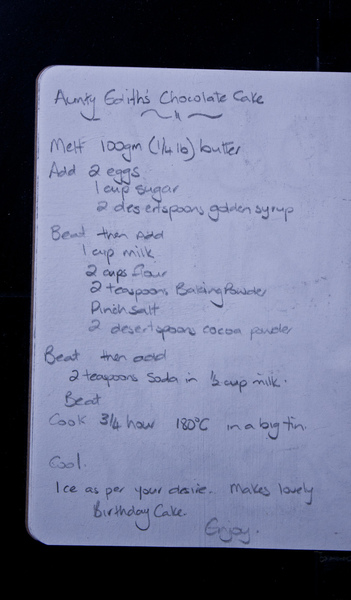 Aunty Edith's Chocolate Cake
Melt 100gm (1/4 lb) butter
Add 2 eggs
1 cup sugar
2 desertspoons golden syrup
Beat then Add
1 cup milk
2 cups flour
2 teaspoons Baking Powder
Pinch salt
2 desertspoons cocoa powder
Beat then add
2 teaspoons Soda in 1/2 cup milk.
Beat
Cook 3/4 hour 180°C in a big tin.
Cool.
Ice as per your desire. Makes lovely
Birthday Cake.
Enjoy.